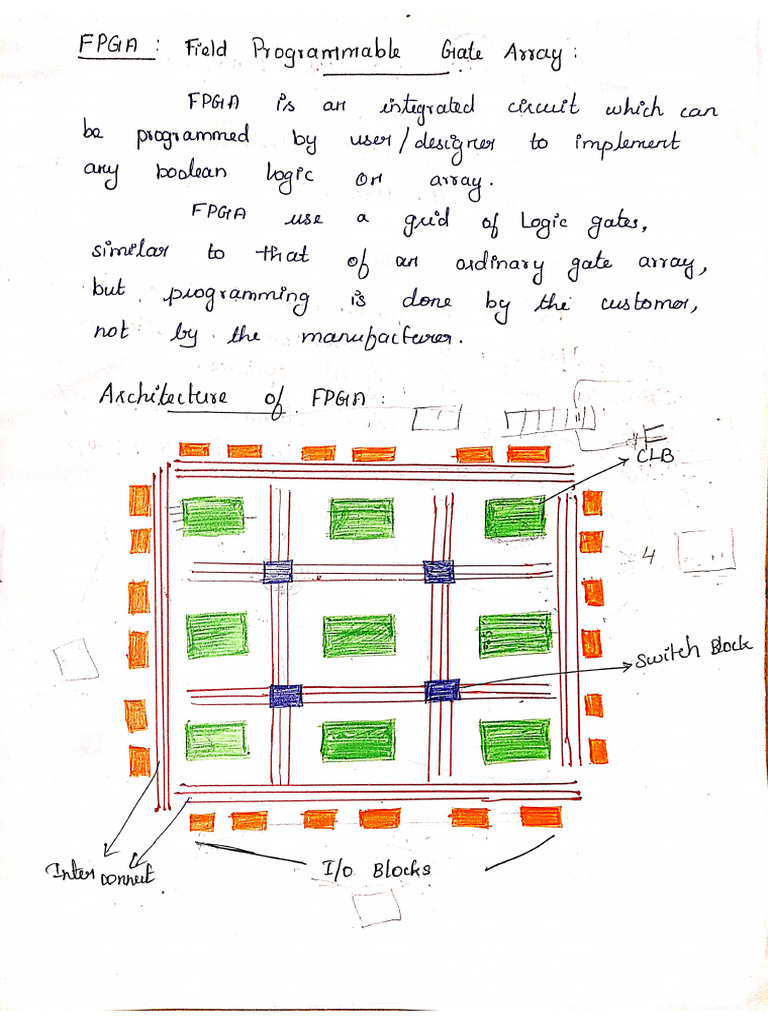 FPGA : Field Programmable Gate Array :
FPGA is an integrated circuit which can
be programmed by user/designer to implement
any boolean logic or array.
FPGA use a grid of Logic gates,
similar to that of an ordinary gate array,
but programming is done by the customer,
not by the manufacturer.
Architecture of FPGA :
CLB
4
Switch Block
Inter connect
I/o Blocks